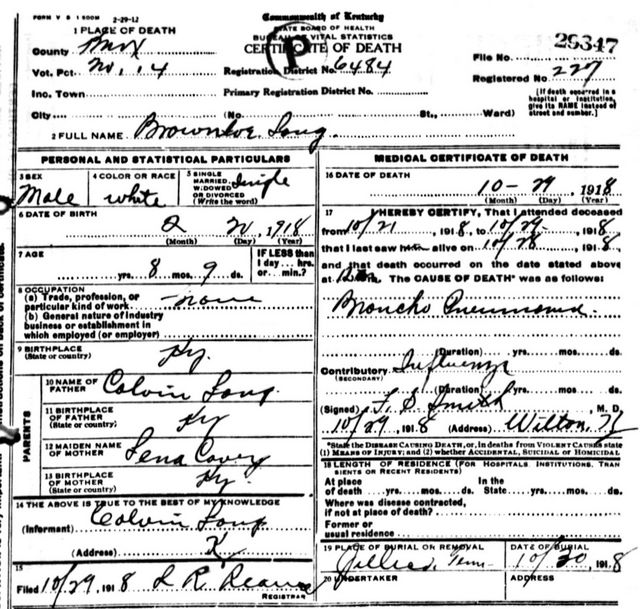 FORM V S 1 500M 2-29-12
Commonwealth of Kentucky
STATE BOARD OF HEALTH
BUREAU OF VITAL STATISTICS
CERTIFICATE OF DEATH
P
1 PLACE OF DEATH
County
Vot. Pct. No. 14
Inc. Town
City
Registration District No. 6484
Primary Registration District No.
(No. St., Ward)
File No. 25347
Registered No. 227
[If death occurred in a
hospital or institution,
give its NAME instead of
street and number.]
2 FULL NAME Brownloe Long
PERSONAL AND STATISTICAL PARTICULARS
3 SEX
Male
4 COLOR OR RACE
white
5 SINGLE
MARRIED,
WIDOWED
OR DIVORCED
(Write the word)
Single
6 DATE OF BIRTH
2 20, 1918
(Month) (Day) (Year)
7 AGE
yrs. 8 mos. 9 ds.
IF LESS than
1 day... hrs.
or... min.?
8 OCCUPATION
(a) Trade, profession, or
particular kind of work none
(b) General nature of industry
business or establishment in
which employed (or employer)
9 BIRTHPLACE
(State or country) Ky.
PARENTS
10 NAME OF
FATHER Colvin Long
11 BIRTHPLACE
OF FATHER
(State or country) Ky
12 MAIDEN NAME
OF MOTHER Lena
13 BIRTHPLACE
OF MOTHER
(State or country) Ky.
14 THE ABOVE IS TRUE TO THE BEST OF MY KNOWLEDGE
(Informant) Colvin Long
(Address) Ky
15
Filed 10/29, 1918
REGISTRAR
MEDICAL CERTIFICATE OF DEATH
16 DATE OF DEATH
10-29, 1918
(Month) (Day) (Year)
17 I HEREBY CERTIFY, That I attended deceased
from 10/21, 1918, to 10/28, 1918,
that I last saw him alive on 10/28, 1918,
and that death occurred on the date stated above
at THE CAUSE OF DEATH* was as follows:
Broncho Pneumonia.
(Duration) yrs. mos. ds.
Contributory Influenza
(SECONDARY)
(Duration) yrs. mos. ds.
(Signed) Smith, M. D.
10/29, 1918 (Address) Wilton, Ky
*State the DISEASE CAUSING DEATH, or, in deaths from VIOLENT CAUSES state
(1) MEANS OF INJURY; and (2) whether ACCIDENTAL, SUICIDAL or HOMICIDAL
18 LENGTH OF RESIDENCE (FOR HOSPITALS, INSTITUTIONS, TRAN
SIENTS OR RECENT RESIDENTS)
At place In the
of death yrs. mos. ds. State yrs. mos. ds.
Where was disease contracted,
if not at place of death?
Former or
usual residence
19 PLACE OF BURIAL OR REMOVAL
Jellico, Tenn
DATE OF BURIAL
10/30, 1918
20 UNDERTAKER
ADDRESS